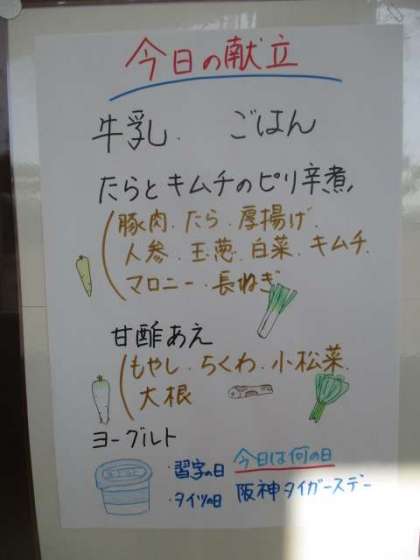 今日の献立
牛乳. ごはん
たらとキムチのピリ辛煮
豚肉.たら.厚揚げ.
人参.玉葱.白菜.キムチ.
マロニー.長ねぎ
甘酢あえ
もやし.ちくわ.小松菜.
大根
ヨーグルト
・習字の日 今日は何の日
・タイツの日 阪神タイガースデー